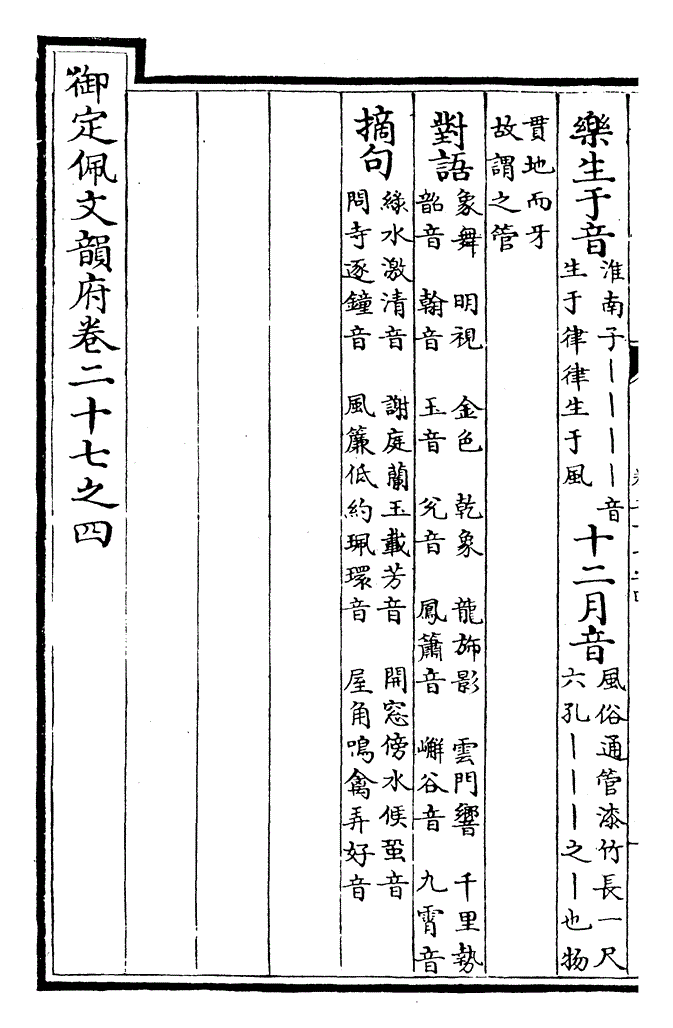 樂生于音淮南子丨丨丨丨音生于律律生于風十二月音風俗通管漆竹長一尺六孔丨丨丨之丨也物
貫地而牙故謂之管
對語象舞 明視 金色 乾象 龍旆影 雲門響 千里勢
韶音 翰音 玉音 兊音 鳳簫音 嶰谷音 九霄音
摘句綠水激清音 謝庭蘭玉載芳音 開窓傍水候蛩音
問寺逐鐘音 風簾低約珮環音 屋角鳴禽弄好音
御定佩文韻府卷二十七之四